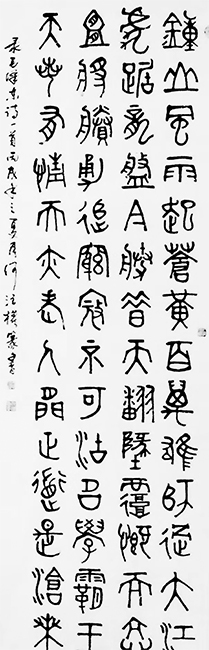 鍾山風雨起蒼黃百萬雄師過大江
虎踞龍盤今勝昔天翻墬覆慨而慷
宜將賸勇追窮寇不可沽名學霸王
天若有情天亦老人間正道是滄桑
录毛澤東詩一首丙戌年之夏月篆書